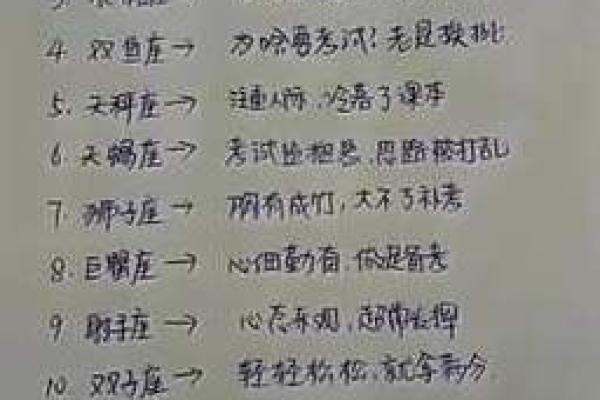 4. 双鱼座→ 为啥要考试!老是挨批
5. 天秤座→ 注重人际,冷落了课本
6. 天蝎座→ 考试也相思,思路被打乱
7. 狮子座→ 胸有成竹,大不了补考
8. 巨蟹座→ 心细勤奋,做足备考
9. 射手座→ 心态乐观,超常发挥
10. 双子座→ 轻轻松松,就拿高分